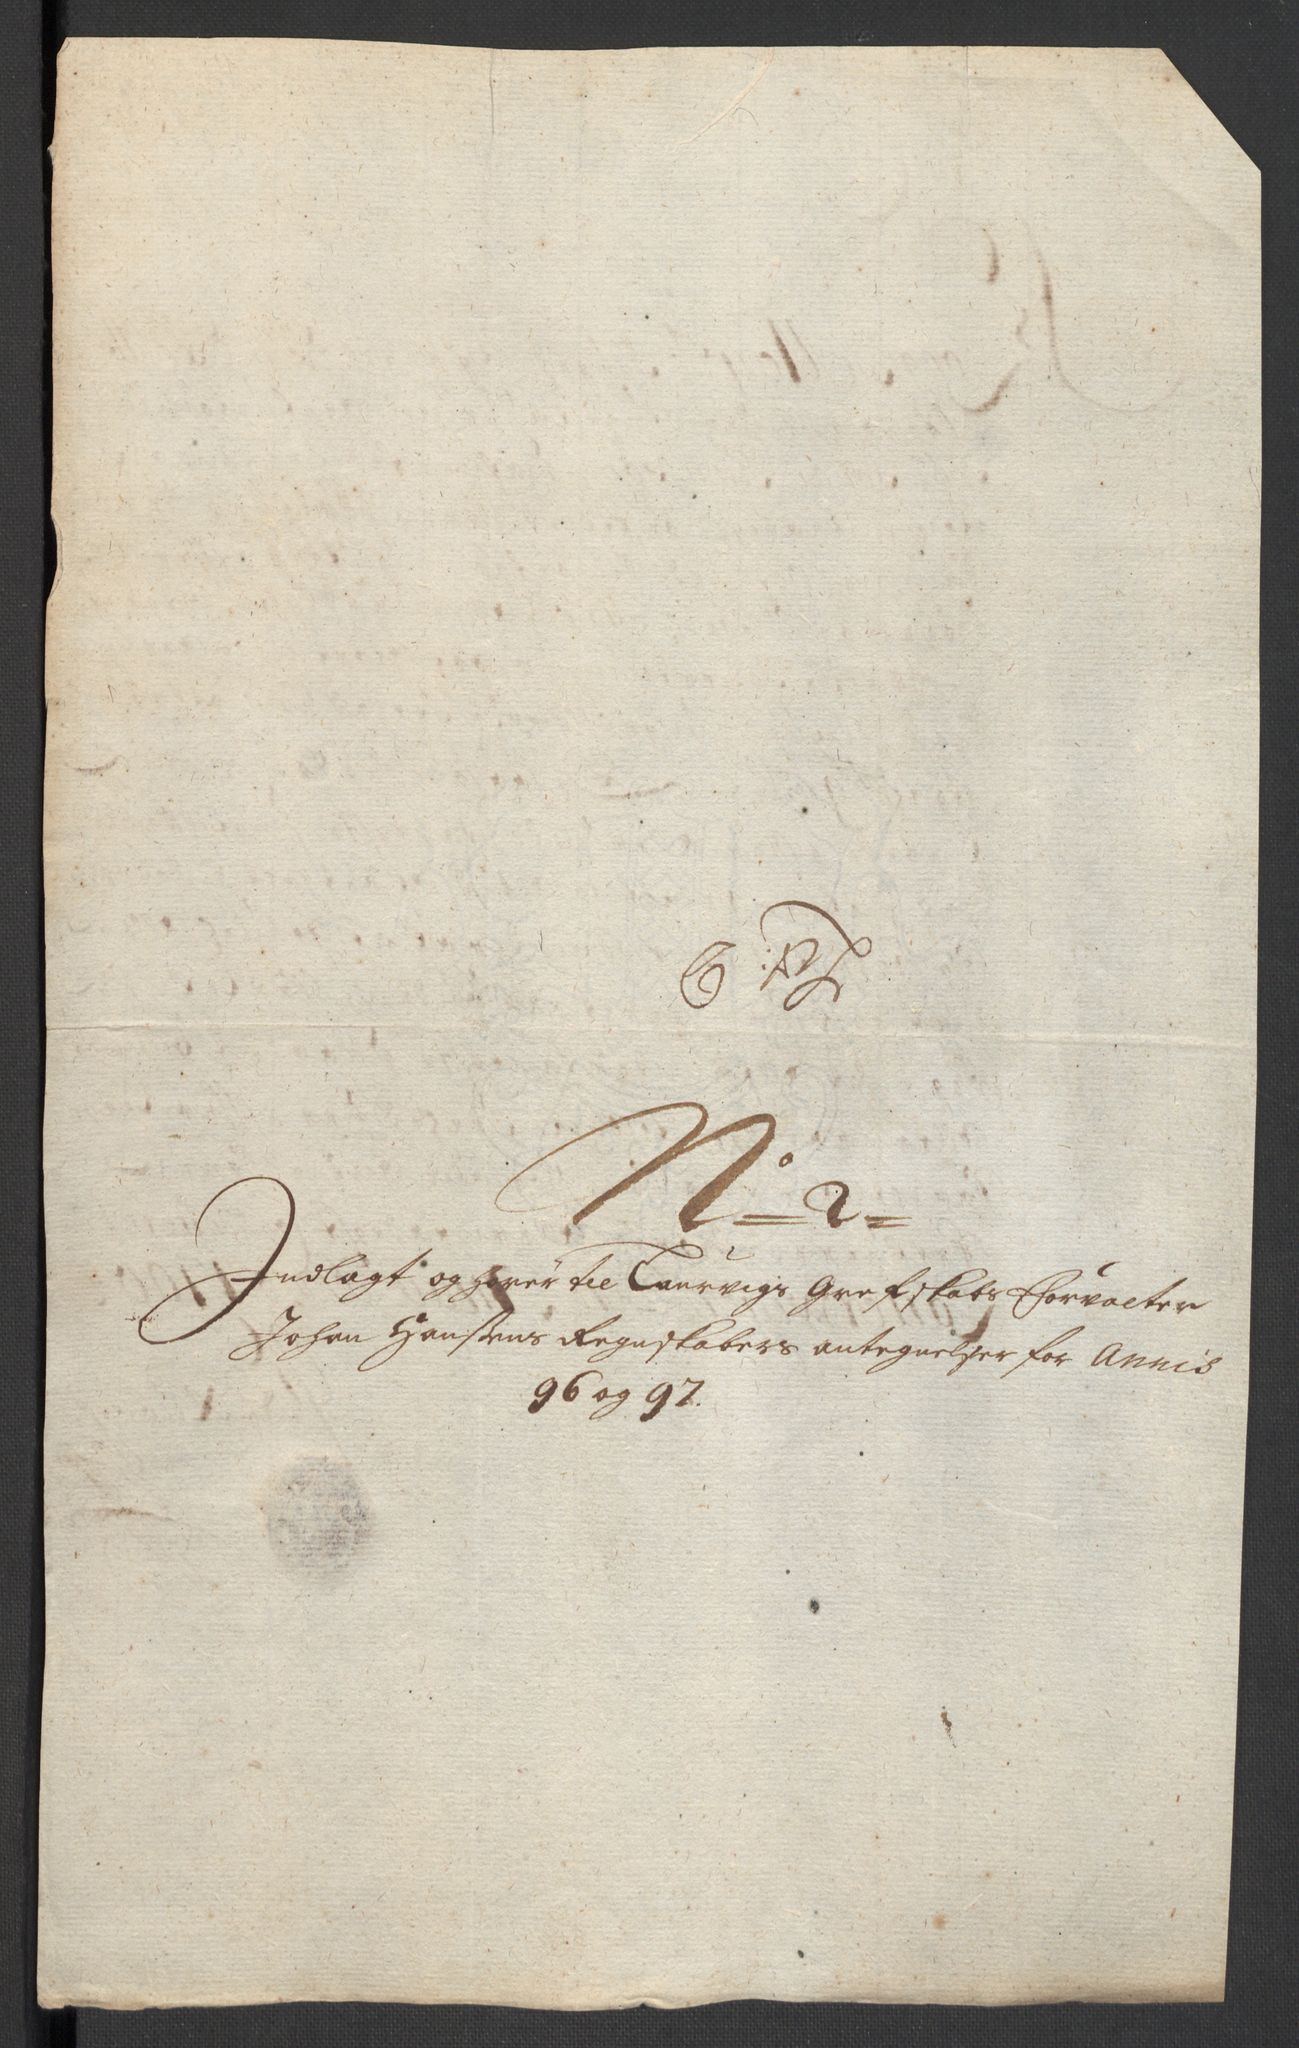 N:o 2
Indlagt og hører til Laurvigs Grefskabs Forvalter
Johan Hansens Regnskabers antegnelser for Annis
96 og 97.